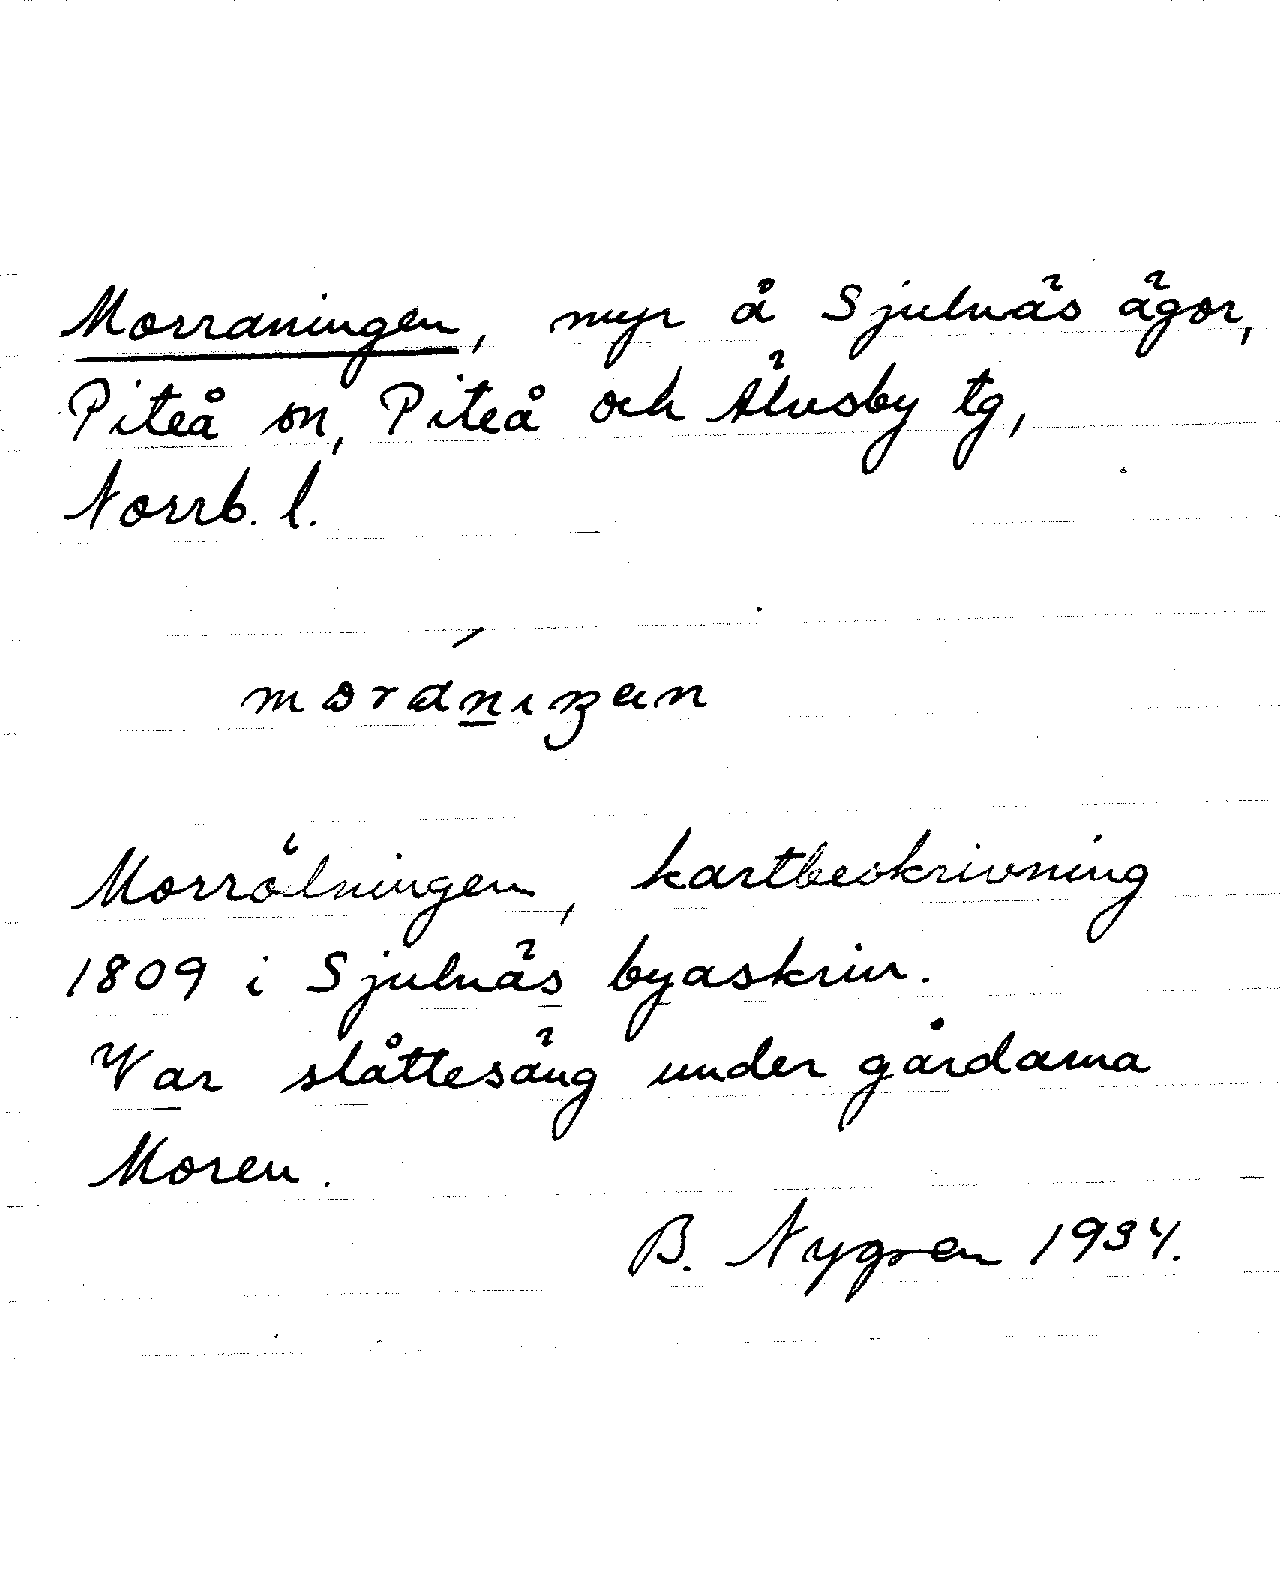 Morraningen, myr å Sjulnäs ägor,
Piteå sn, Piteå och Älvsby tg,
Norrb. l.
Morrölningen, kartbeskrivning
1809 i Sjulnäs byaskrin.
Var slåttesäng under gårdarna
Moren.
B. Nygren 1934.